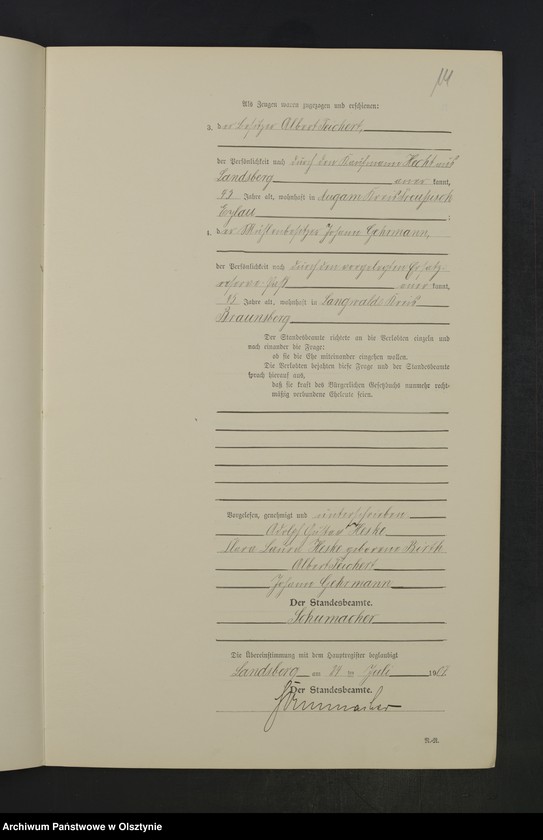 114
Als Zeugen waren zugezogen und erschienen:
3. der Besitzer Albert Teichert,
der Persönlichkeit nach durch den Kaufmann Hecht aus
Landsberg anerkannt,
Jahre alt, wohnhaft in Augam Kreis Preußisch
Eylau ;
4. der Mühlenbesitzer Johann Gehrmann,
der Persönlichkeit nach durch den vorgelegten Ersatz-
reserve-Paß anerkannt,
Jahre alt, wohnhaft in Langwalde Kreis
Braunsberg
Der Standesbeamte richtete an die Verlobten einzeln und
nach einander die Frage:
ob sie die Ehe miteinander eingehen wollen.
Die Verlobten bejahten diese Frage und der Standesbeamte
sprach hierauf aus,
daß sie kraft des Bürgerlichen Gesetzbuchs nunmehr recht-
mäßig verbundene Eheleute seien.
Vorgelesen, genehmigt und unterschrieben
Adolf Gustav Heske
Clara Laura Heske geborene Wirth
Albert Teichert
Johann Gehrmann
Der Standesbeamte.
Schumacher
Die Übereinstimmung mit dem Hauptregister beglaubigt
Landsberg am ten Juli 1908.
Der Standesbeamte.
Schumacher
R.-R.
Archiwum Państwowe w Olsztynie